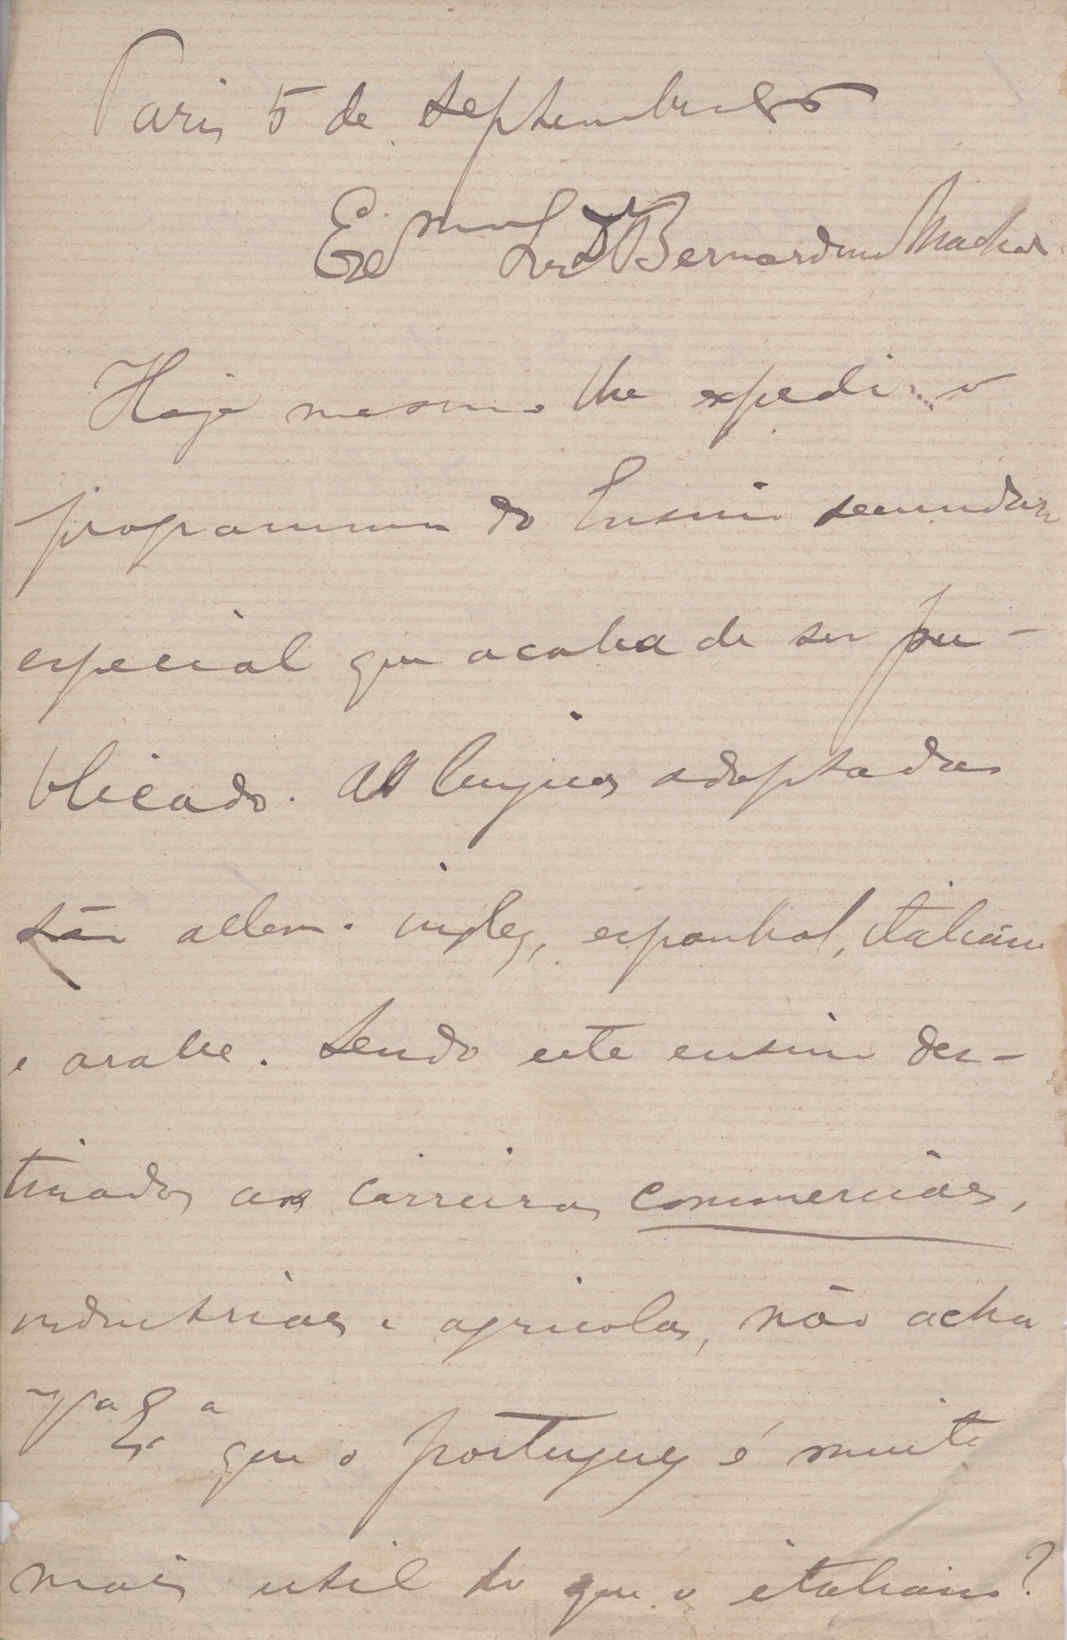 Paris 5 de Septembro 86
Exmo Snr Dr Bernardino Machado
Hoje mesmo lhe expedi o
programma do Ensino secundario
especial que acaba de ser pu-
blicado. As linguas adoptadas
são allem. inglez, espanhol, italiano
e arabe. Sendo este ensino des-
tinados as carreiras commerciaes,
industriaes e agricolas, não acha
Va Exa que o portuguez é muito
mais util do que o italiano?